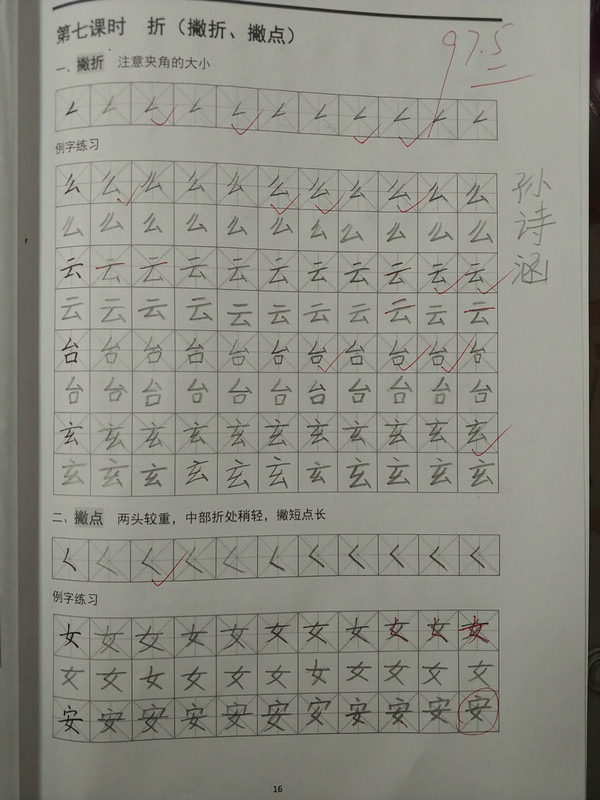 第七课时 折（撇折、撇点）
97.5
一、撇折 注意夹角的大小
𠃋𠃋𠃋𠃋𠃋𠃋𠃋𠃋𠃋𠃋𠃋
例字练习
么么么么么么么么么么么
么么么么么么么么么么么
云云云云云云云云云云云
云云云云云云云云云云云
台台台台台台台台台台台
台台台台台台台台台台台
玄玄玄玄玄玄玄玄玄玄玄
玄玄玄玄玄玄玄玄玄玄玄
孙诗涵
二、撇点 两头较重，中部折处稍轻，撇短点长
𡿨𡿨𡿨𡿨𡿨𡿨𡿨𡿨𡿨𡿨𡿨
例字练习
女女女女女女女女女女女
女女女女女女女女女女女
安安安安安安安安安安安
16